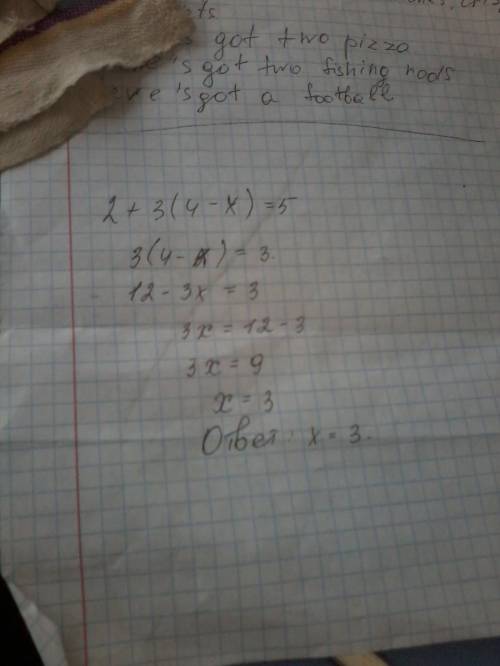 got two pizza
's got two fishing rods
's got a football
2 + 3(4 - x) = 5
3(4 - x) = 3.
12 - 3x = 3
3x = 12 - 3
3x = 9
x = 3
Ответ: x = 3.